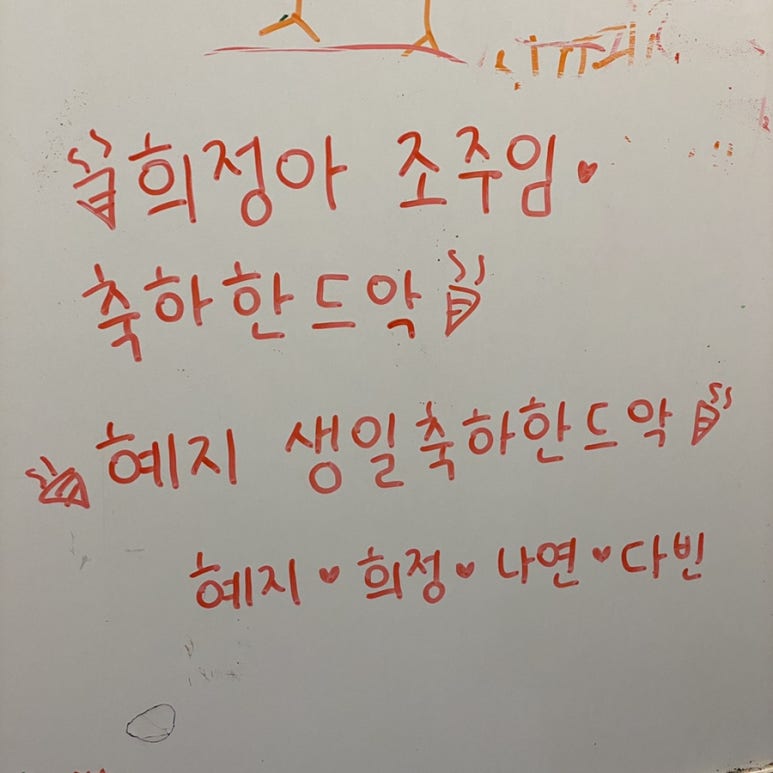 희정아 조주임♥
축하한드악
혜지 생일축하한드악
혜지♥희정♥나연♥다빈